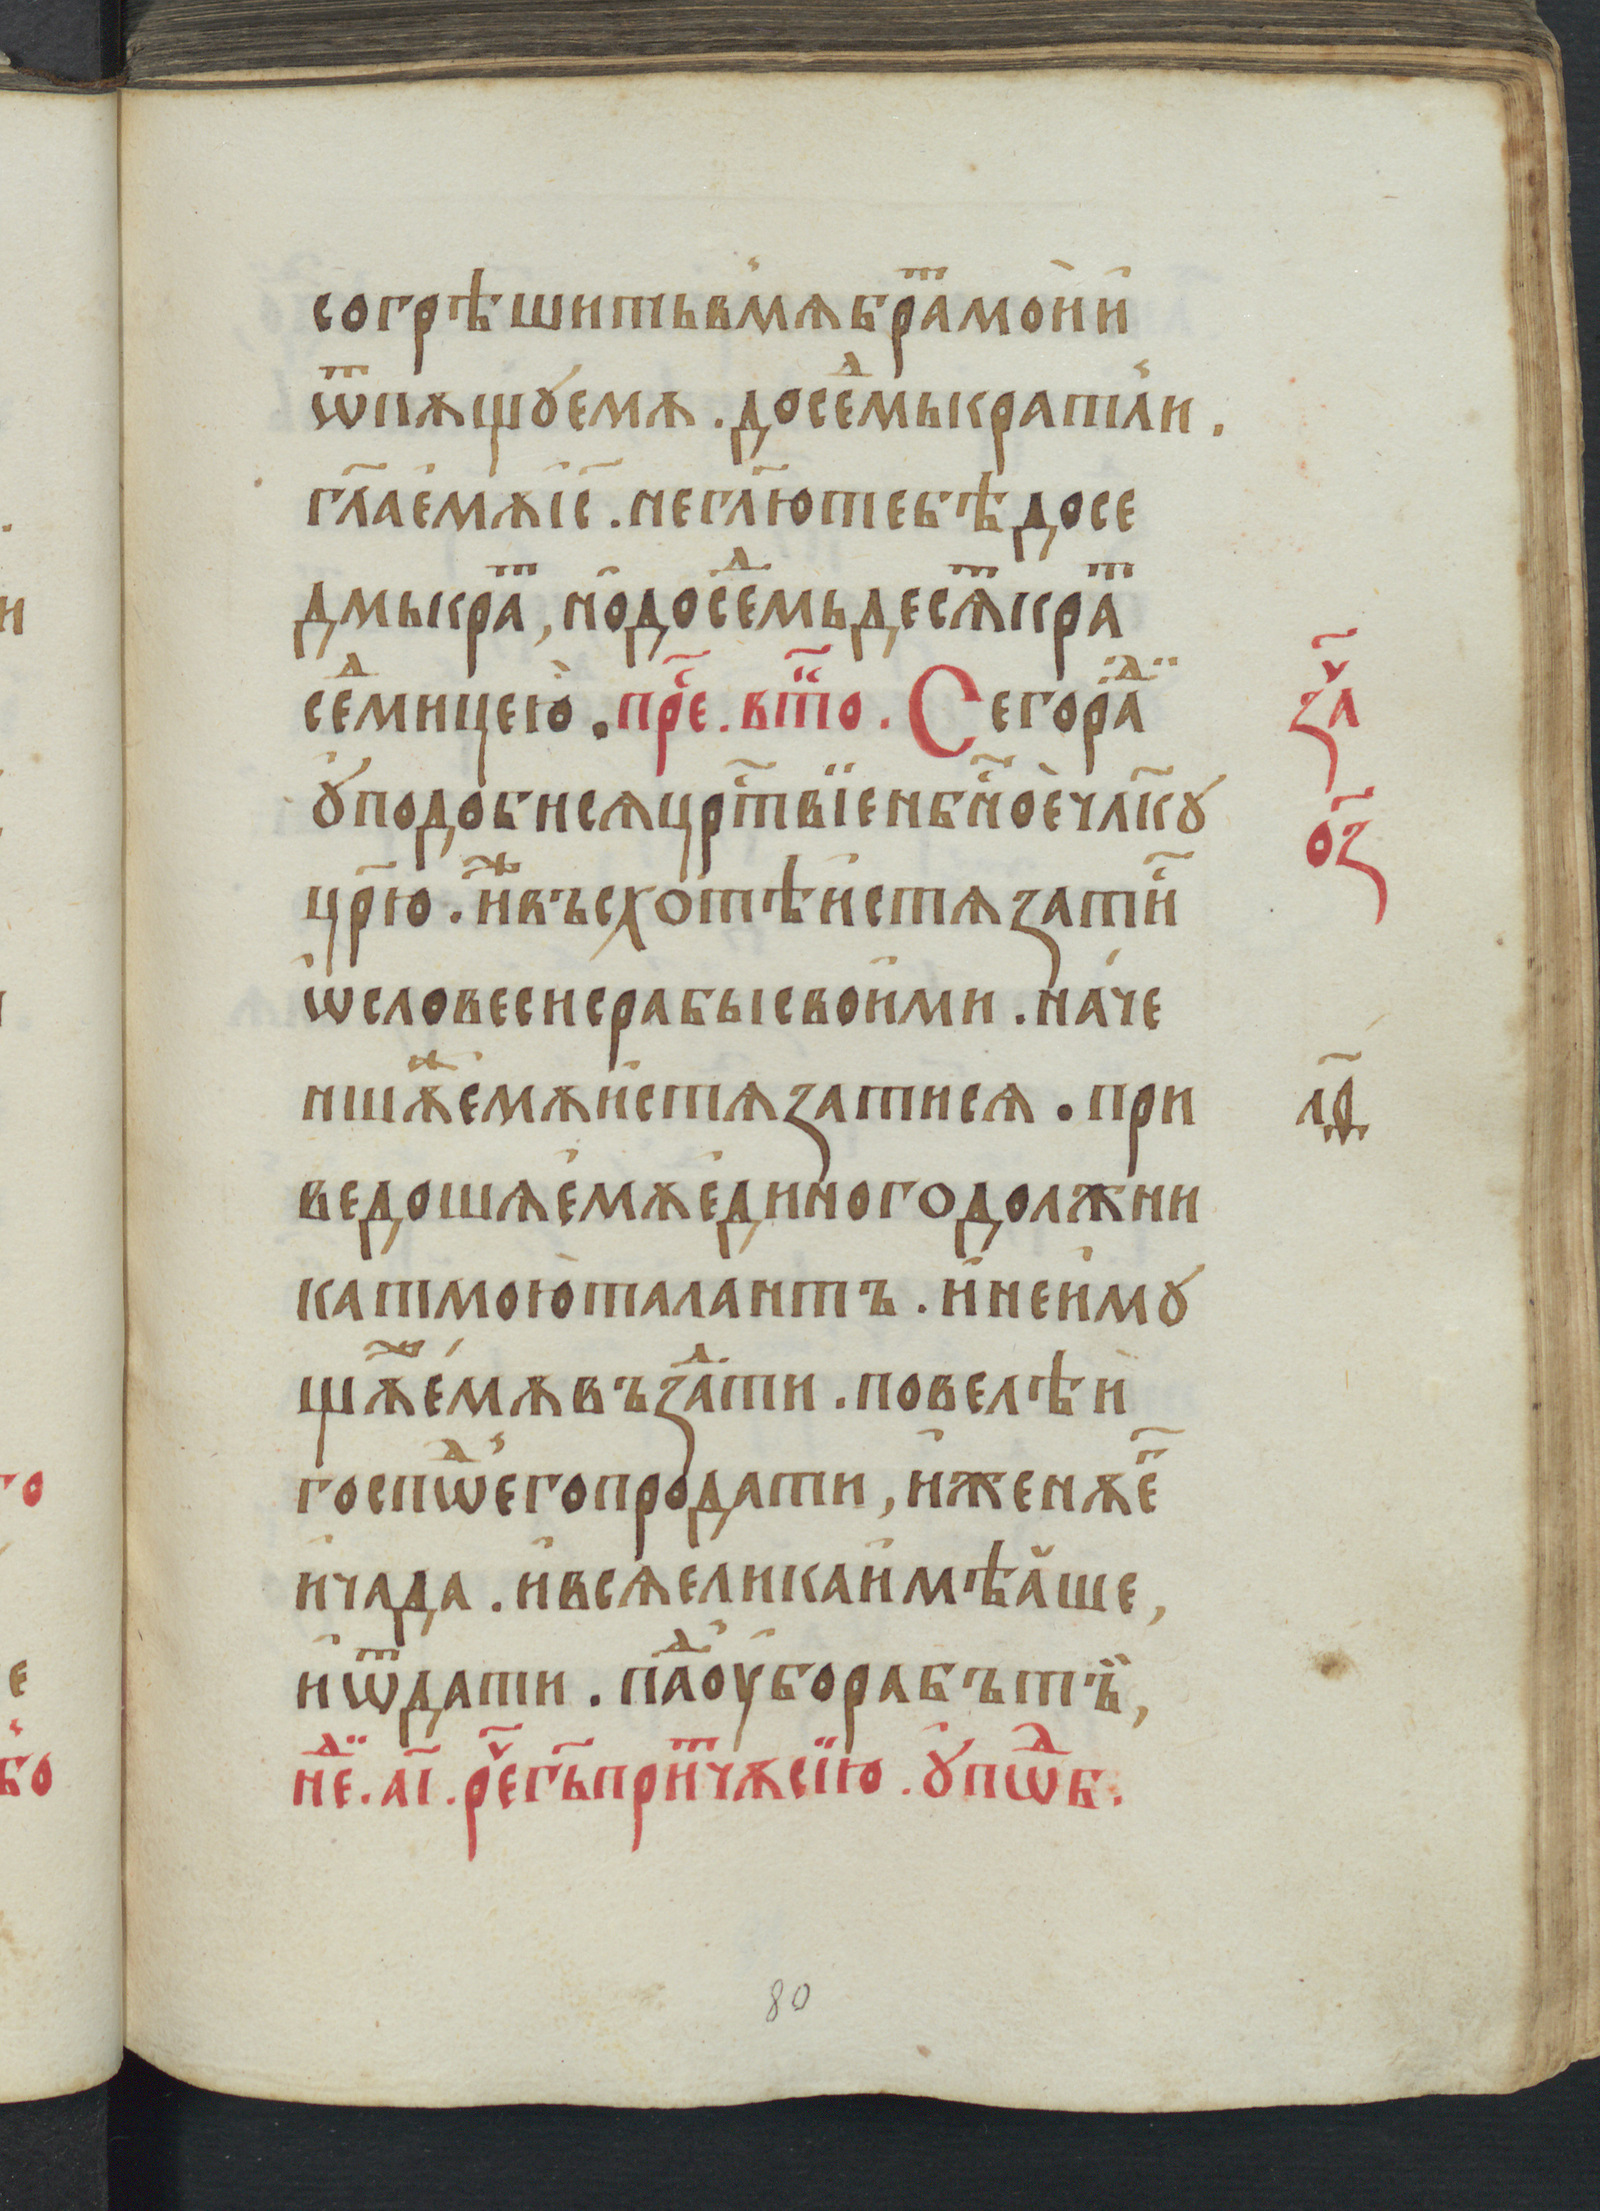 согрѣшитьвмѧбра҃тмои҆и҆
ѿпѫщꙋемѫ. досе҃дмькратли.
гл҃ае҆мѫі҆с҃. негл҃ютебѣдосе
дмькра҃т, нодосе҃дмьдесѧ҃ткра҃т
се҃дмицею̀. прⷭ҇е. втⷪ҇о. Сегора҃ди
ꙋ҆подобисѧцрⷭ҇твїенбⷭ҇ное҆чл҃кꙋ
цр҃ю. и҆жевъсхотѣи҆стѧзатиⷭ҇
ѡ҆словесисрабысвои҆ми. наче
ншѫжеемѫи҆стѧзатисѧ. при
ведошѧе҆мѫе҆диногодолжни
катмою̀талантъ. и҆неи҆мꙋ
щѫже́мѫвъзда҃ти. повелѣи
госпѿде҆гопродати, и҆женѫе҆г҃
и҆чада. и҆всѧеликаи҆мѣа҆ше,
и҆ѿдати. па҃доу҆борабътъи,
неⷣ. аі҃. рⷱ҇егь҃при҃тчѫсїю. ꙋ҆пѡⷣб.
зⷱ҇л
оз҃
лд҃
80